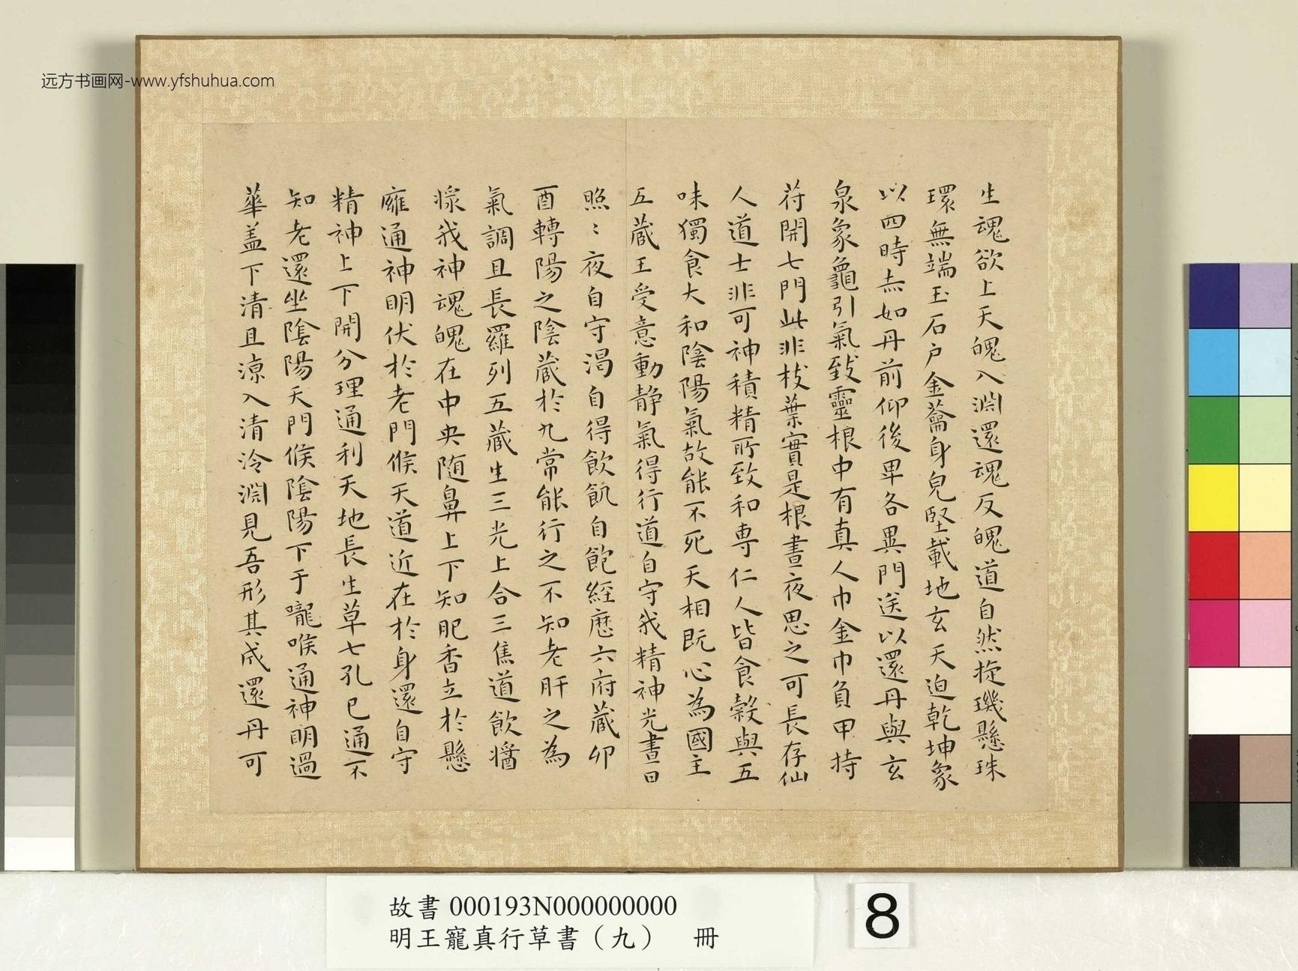 远方书画网-www.yfshuhua.com
生魂欲上天魄入淵還魂反魄道自然旋璣懸珠
環無端玉石户金籥身皃堅載地玄天迫乾坤象
以四時赤如丹前仰後卑各異門送以還丹與玄
泉象龜引氣致靈根中有真人巾金巾負甲持
苻開七門此非枝葉實是根晝夜思之可長存仙
人道士非可神積精所致和專仁人皆食穀與五
味獨食大和陰陽氣故能不死天相既心為國主
五藏王受意動静氣得行道自守我精神光晝日
照〻夜自守渴自得飲飢自飽經歷六府藏卯
酉轉陽之陰藏於九常能行之不知老肝之為
氣調且長羅列五藏生三光上合三焦道飲醬
漿我神魂魄在中央随鼻上下知肥香立於懸
廱通神明伏於老門候天道近在於身還自守
精神上下開分理通利天地長生草七孔已通不
知老還坐陰陽天門候陰陽下于嚨喉通神明過
華盖下清且凉入清泠淵見吾形其成還丹可
故書 000193N000000000
明王寵真行草書（九） 冊
8